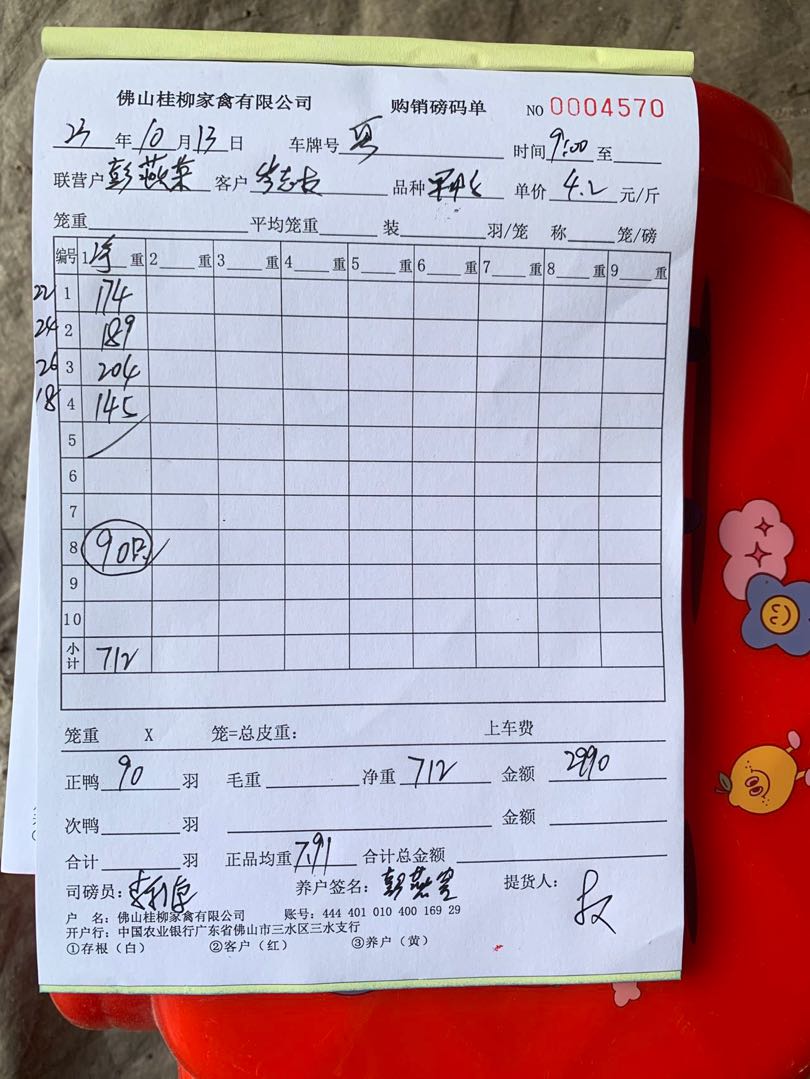 佛山桂柳家禽有限公司 购销磅码单 NO 0004570
23 年 10 月 13 日 车牌号 时间 9:00 至
联营户 彭燕 客户 品种 单价 4.2 元/斤
笼重 平均笼重 装 羽/笼 称 笼/磅
编号 1 净 重 2 重 3 重 4 重 5 重 6 重 7 重 8 重 9 重
22 1 174
24 2 189
26 3 204
18 4 145
5
6
7
8 90只
9
10
小计 712
笼重 X 笼=总皮重: 上车费
正鸭 90 羽 毛重 净重 712 金额 2990
次鸭 羽 金额
合计 羽 正品均重 7.91 合计总金额
司磅员: 养户签名: 彭燕 提货人:
户 名: 佛山桂柳家禽有限公司 账号: 444 401 010 400 169 29
开户行: 中国农业银行广东省佛山市三水区三水支行
①存根(白) ②客户(红) ③养户(黄)